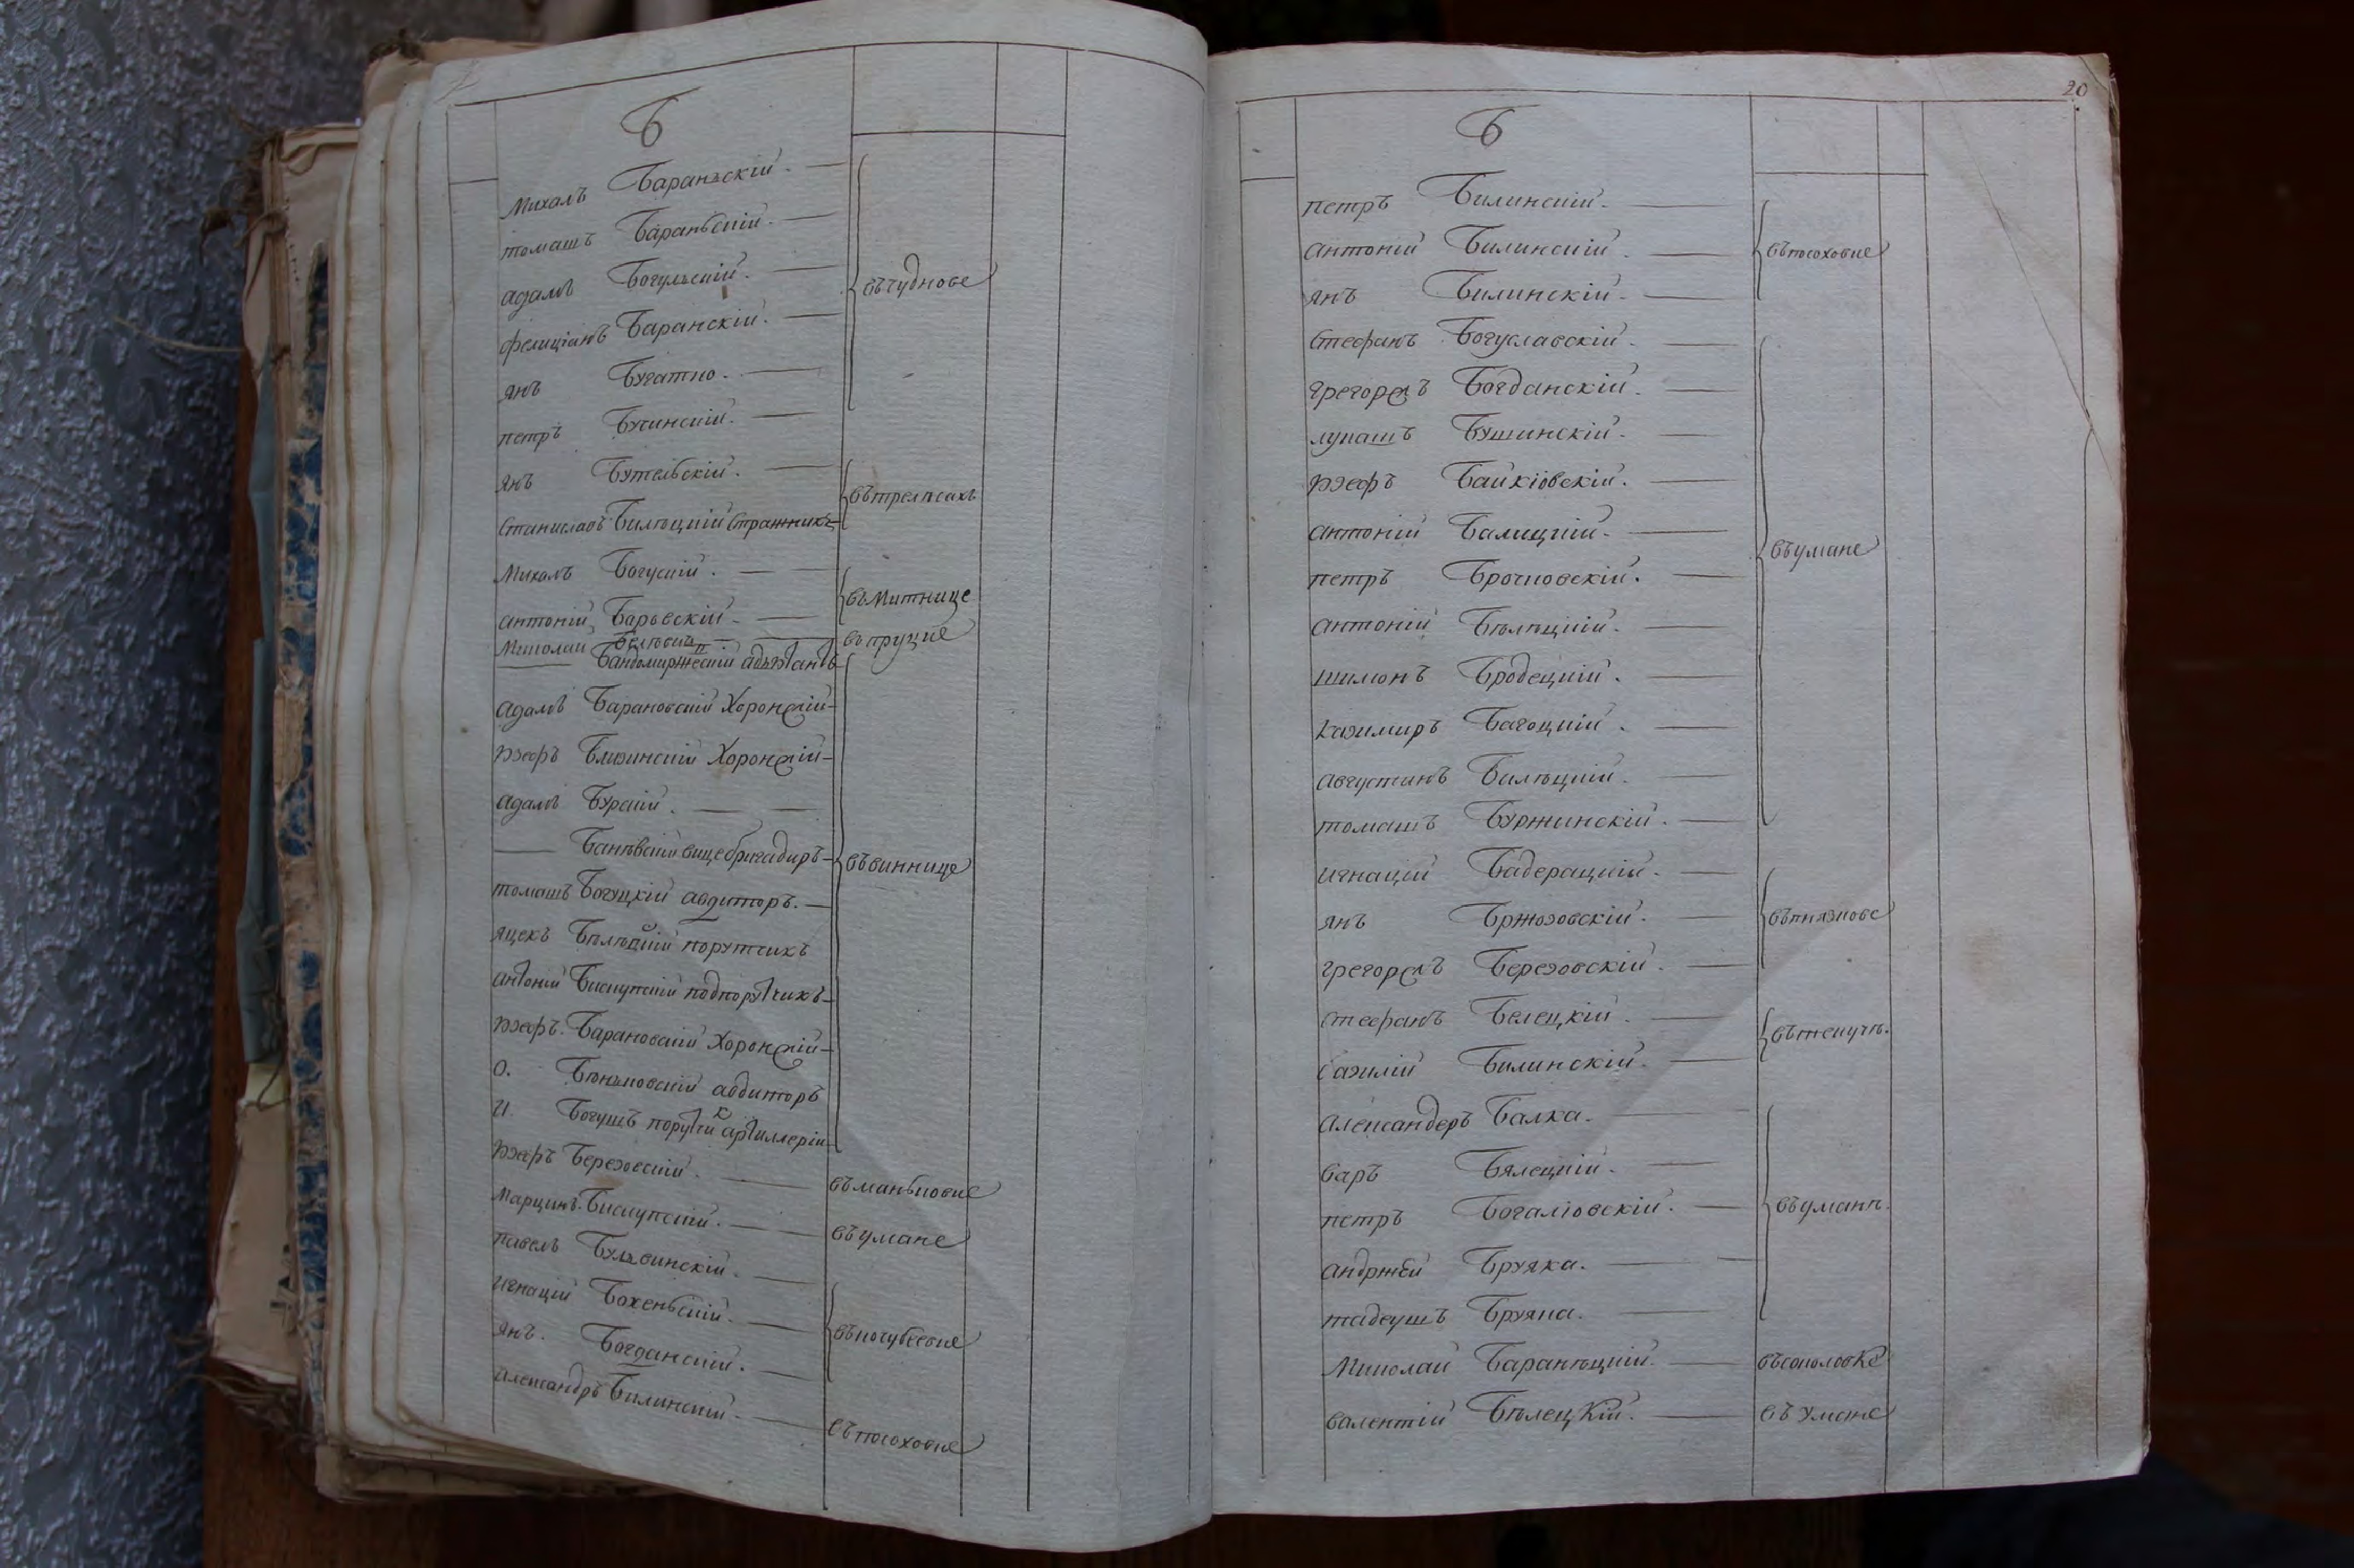 Б
Михалъ Баранъскій.
томашъ Бараньскій.
адамъ Богульскій.
фелиціанъ Баранскій.
янъ Бугатко.
петръ Бучинскій.
янъ Бутельскій.
Станиславъ Билѣцкій Стражникъ
Михалъ Богускій.
антоній Барьвскій.
Миколай
Бандомиржескій адъютантъ
адамъ Барановскій Хоронжій
юзефъ Близинскій Хоронжій
адамъ Бурскій.
Банѣвскій вице бригадиръ
томашъ Богуцкій авдиторъ.
яцекъ Бѣлѣцкій порутчикъ
антоній Бискупскій подпорутчикъ
юзефъ. Барановскій Хоронжій
О. Бѣньковскій авдиторъ
И. Богушъ порутчик артиллеріи
юзефъ Березовскій.
Марцинъ. Бискупскій.
павелъ Бульвинскій.
игнацій Бохеньскій.
янъ. Богданскій.
александръ Билинскій.
въ чуднове
въ Митнице
въ виннице
въ маньковке
въ умане
въ кочубеевке
въ посоховке
20
Б
петръ Билинскій.
антоній Билинскій.
янъ Билинскій.
Стефанъ Богуславскій.
грегоржъ Богданскій.
лукашъ Бушинскій.
юзефъ Байкіовскій.
антоній Балицкій.
петръ Брочковскій.
антоній Бѣлѣцкій.
шимонъ Бродецкій.
казимиръ Багоцкій.
августинъ Билѣцкій.
томашъ Буржинскій.
игнацій Бадерацкій.
янъ Бржозовскій.
грегоржъ Березовскій.
стефанъ Белецкій.
базилій Билинскій.
александеръ Балка.
варъ Бялецкій.
петръ Богаліовскій.
андржей Бруяка.
тадеушъ Бруяка.
Миколай Баранѣцкій.
валентій Бѣлецкій.
въ посоховке
въ умане
въ текучѣ.
въ уманѣ.
въ соколовке
въ умане